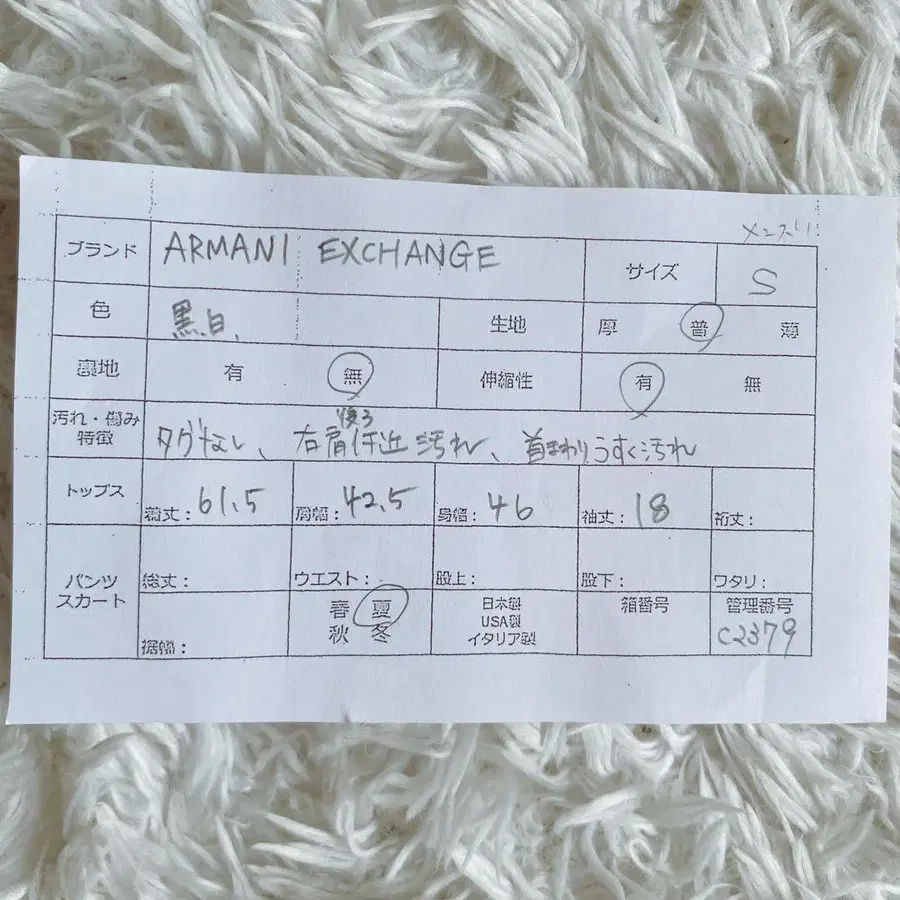 メンズS
ブランド ARMANI EXCHANGE サイズ S
色 黒白、 生地 厚 普 薄
裏地 有 無 伸縮性 有 無
後ろ
汚れ・傷み 特徴 タグなし、右肩付近汚れ、首まわりうすく汚れ
トップス 着丈：61.5 肩幅：42.5 身幅：46 袖丈：18 裄丈：
パンツ スカート 総丈： ウエスト： 股上： 股下： ワタリ：
裾幅： 春 夏 秋 冬 日本製 USA製 イタリア製 箱番号 管理番号 C2379